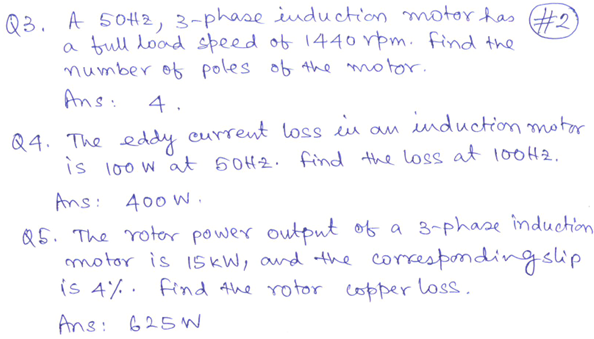 Q3. A 50Hz, 3-phase induction motor has #2
a full load speed of 1440 rpm. Find the
number of poles of the motor.
Ans: 4.
Q4. The eddy current loss in an induction motor
is 100 W at 50Hz. Find the loss at 100Hz.
Ans: 400 W.
Q5. The rotor power output of a 3-phase induction
motor is 15 kW, and the corresponding slip
is 4%. Find the rotor copper loss.
Ans: 625 W